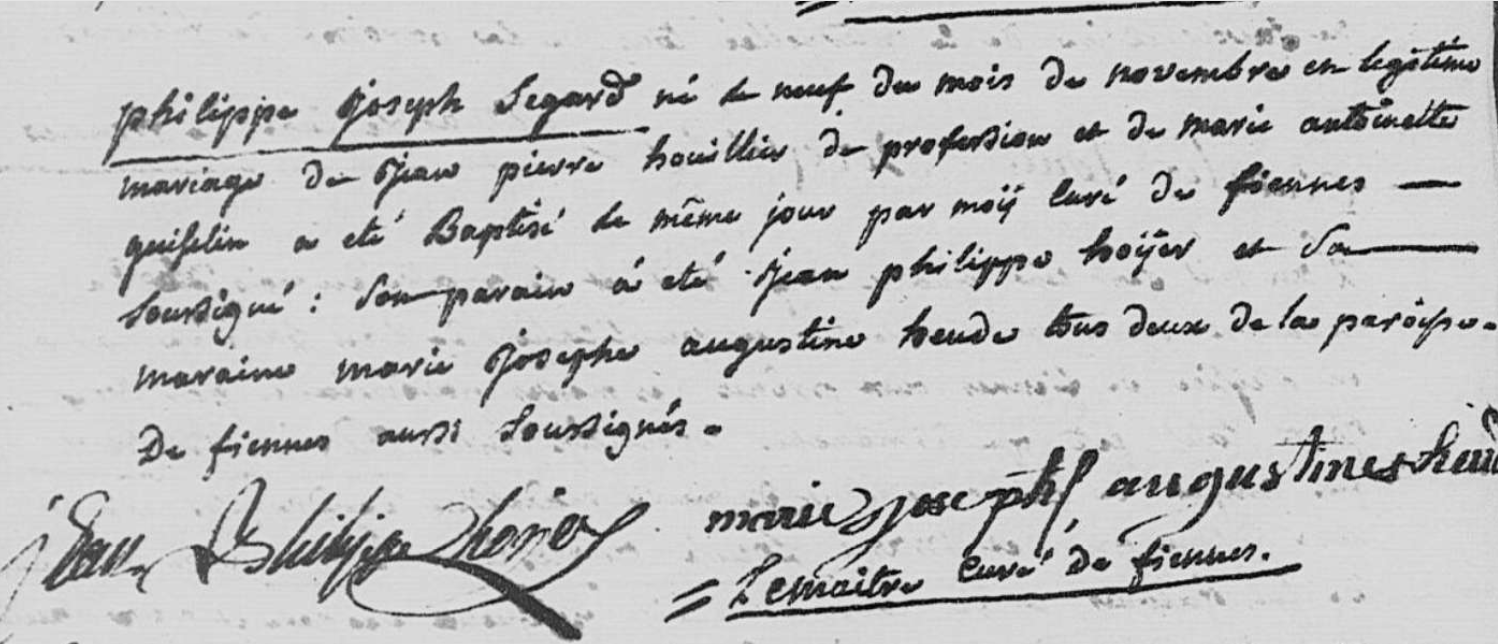 philippe joseph Segard né le neuf du mois de novembre en legitime
mariage de Jean pierre houillier de profession et de marie antoinette
guiselin a eté Baptisé le même jour par moÿ Curé de fiennes —
Soussigné : Son parain á eté Jean philippe hoÿer et Sa —
maraine marie Josephe augustine heude tous deux de la paroisse
De fiennes aussi Soussignés.
jean Philippe hoyer
marie joseph augustines heud
= Lemaitre Curé De fiennes.